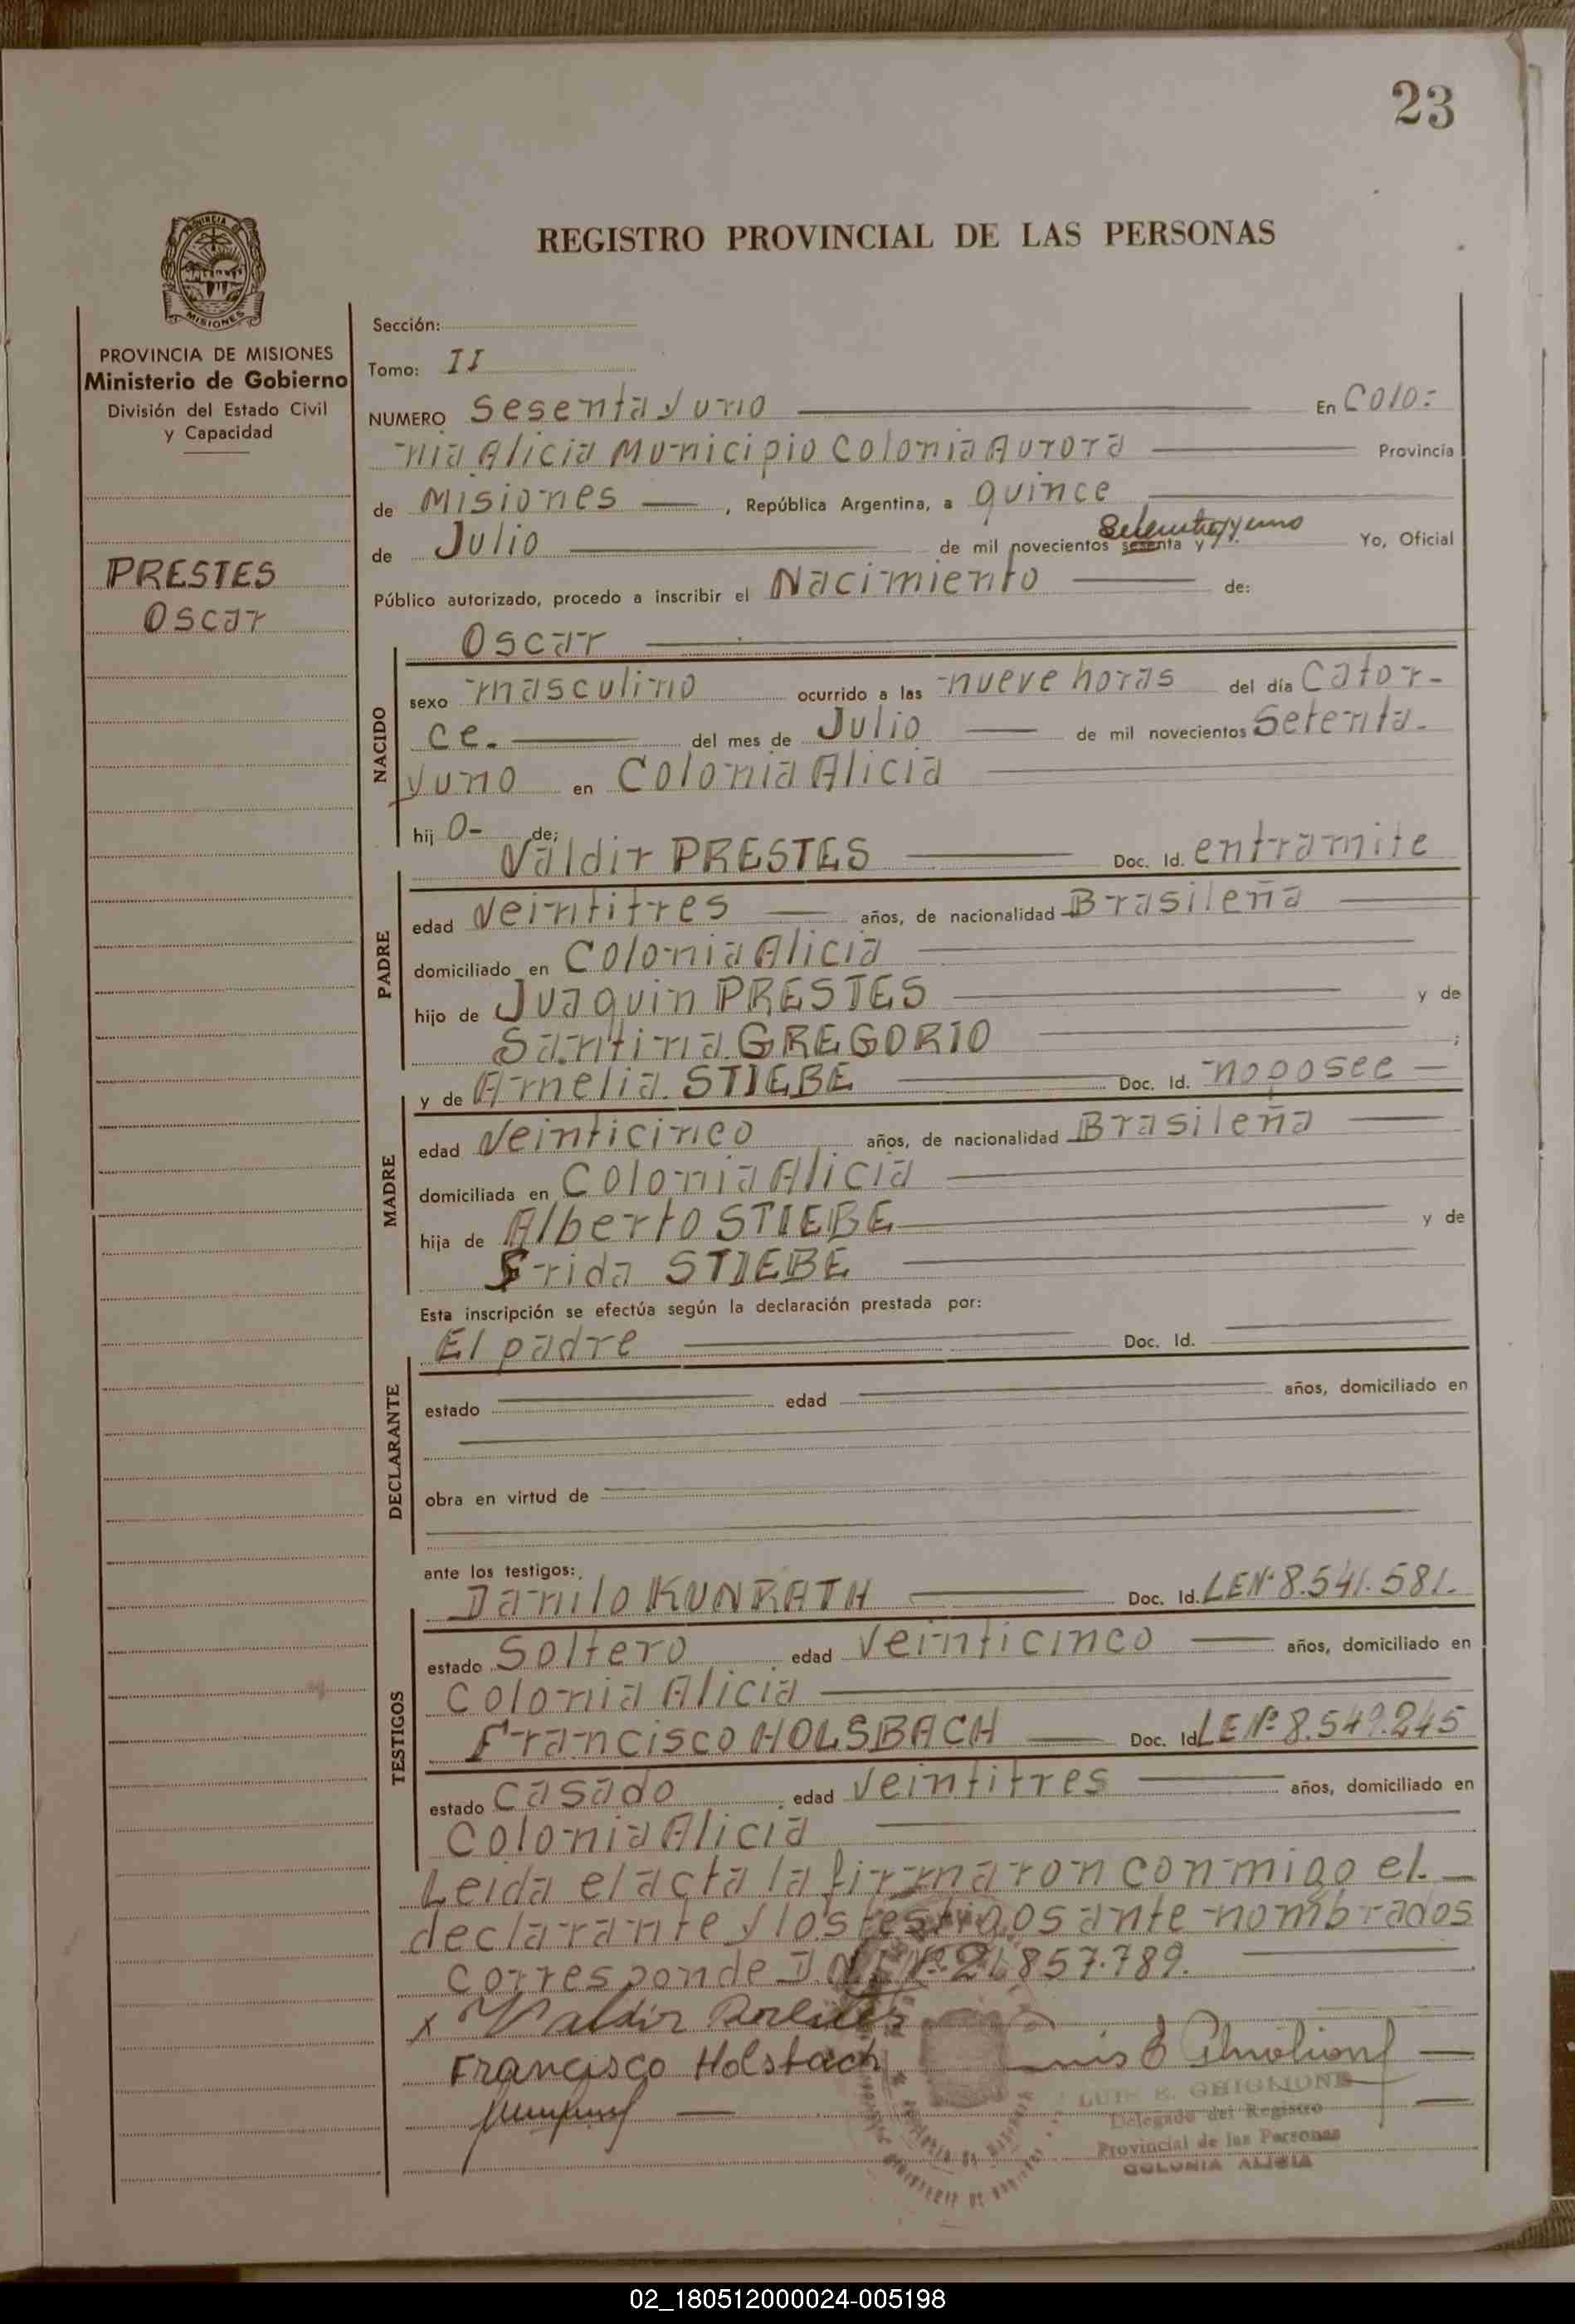 23
PROVINCIA DE
MISIONES
REGISTRO PROVINCIAL DE LAS PERSONAS
PROVINCIA DE MISIONES
Ministerio de Gobierno
División del Estado Civil
y Capacidad
PRESTES
Oscar
Sección:
Tomo: II
NUMERO Sesenta y uno En Colo=
nia Alicia Municipio Colonia Aurora Provincia
de Misiones , República Argentina, a quince
de Julio de mil novecientos sesenta y Setenta y uno Yo, Oficial
Público autorizado, procedo a inscribir el Nacimiento de:
Oscar
NACIDO
sexo masculino ocurrido a las nueve horas del día Cator-
ce. del mes de Julio de mil novecientos Setenta-
y uno en Colonia Alicia
hij o- de:
PADRE
Valdir PRESTES Doc. Id. en tramite
edad Veintitres años, de nacionalidad Brasileña
domiciliado en Colonia Alicia
hijo de Juaquin PRESTES y de
Santina GREGORIO ;
MADRE
y de Arnelia STIEBE Doc. Id. no posee
edad Veinticinco años, de nacionalidad Brasileña
domiciliada en Colonia Alicia
hija de Alberto STIEBE y de
Frida STIEBE
Esta inscripción se efectúa según la declaración prestada por:
DECLARANTE
El padre Doc. Id.
estado edad años, domiciliado en
obra en virtud de
ante los testigos:
TESTIGOS
Danilo KUNRATH Doc. Id. LE Nº 8.541.581.
estado Soltero edad Veinticinco años, domiciliado en
Colonia Alicia
Francisco HOLSBACH Doc. Id. LE Nº 8.549.245
estado Casado edad Veintitres años, domiciliado en
Colonia Alicia
Leida el acta la firmaron conmigo el
declarante y los testigos ante nombrados
Corresponde DNI Nº 21.857.789.
x Valdir Prestes
Francisco Holsbach
LUIS E. GHIGLIONE
Delegado del Registro
Provincial de las Personas
COLONIA ALICIA
02_180512000024-005198